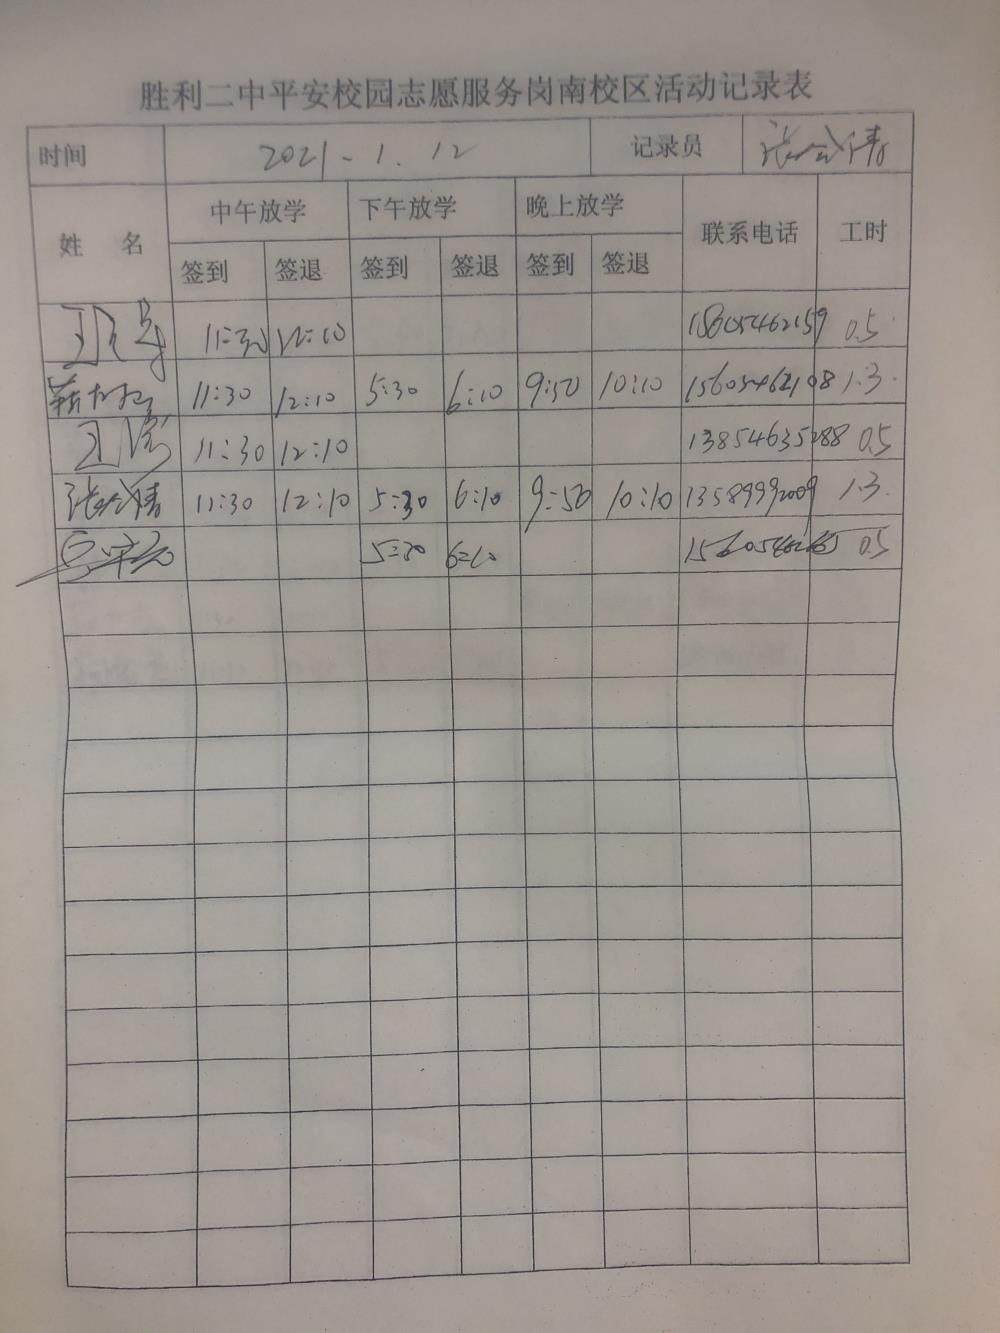 胜利二中平安校园志愿服务岗南校区活动记录表
时间 2021-1.12 记录员
姓 名 中午放学 下午放学 晚上放学 联系电话 工时
签到 签退 签到 签退 签到 签退
11:30 12:10 15605462159 0.5
11:30 12:10 5:30 6:10 9:50 10:10 15605462108 1.3
11:30 12:10 13854635288 0.5
11:30 12:10 5:30 6:10 9:50 10:10 13589992009 1.3
5:30 6:10 0.5